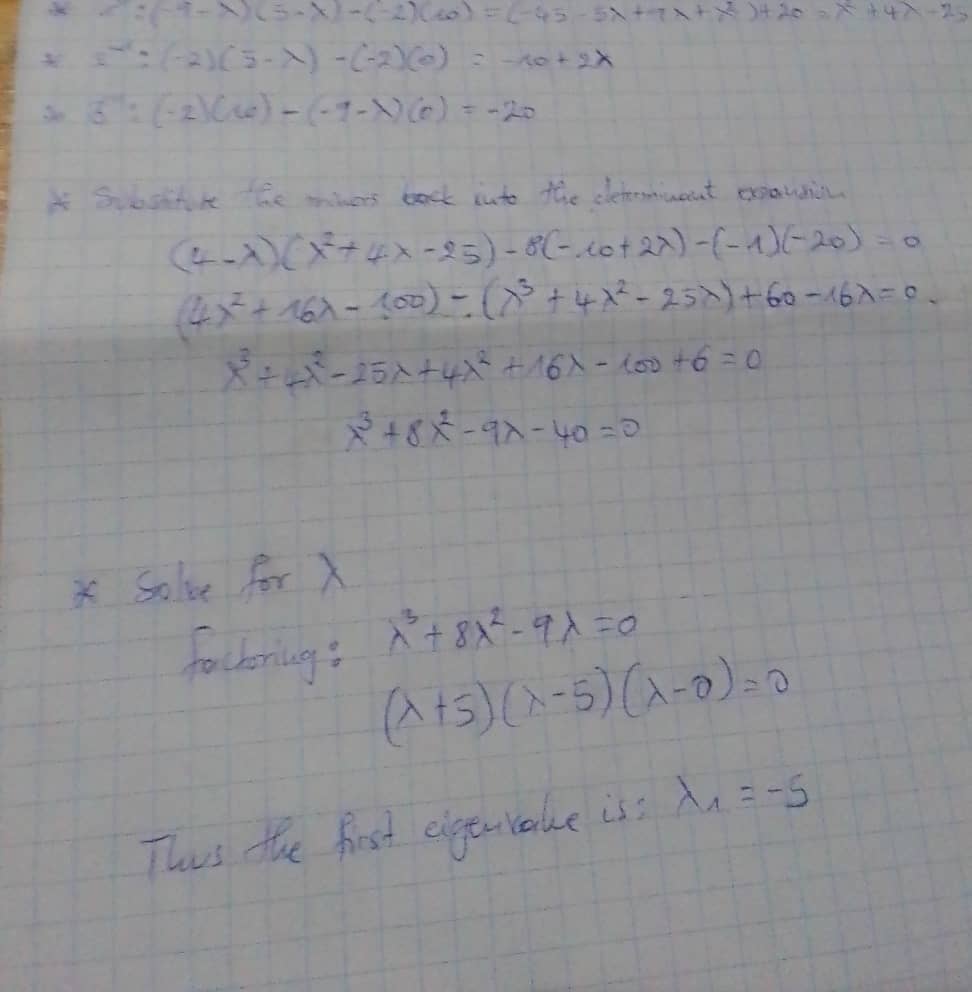 * : (-9-λ)(5-λ)-(-2)(10) = (-45-5λ+9λ+λ²)+20 = λ²+4λ-25
* : (-2)(5-λ) -(-2)(0) = -10+2λ
* 3 : (-2)(10) - (-9-λ)(0) = -20
* Substitute the minors back into the determinant expansion
(4-λ)(λ²+4λ-25)-8(-10+2λ)-(-1)(-20)=0
(4λ²+16λ-100)-(λ³+4λ²-25λ)+60-16λ=0.
λ³+4λ²-25λ+4λ²+16λ-100+6=0
λ³+8λ²-9λ-40=0
* Solve for λ
factoring: λ³+8λ²-9λ=0
(λ+5)(λ-5)(λ-0)=0
Thus the first eigenvalue is: λ₁=-5